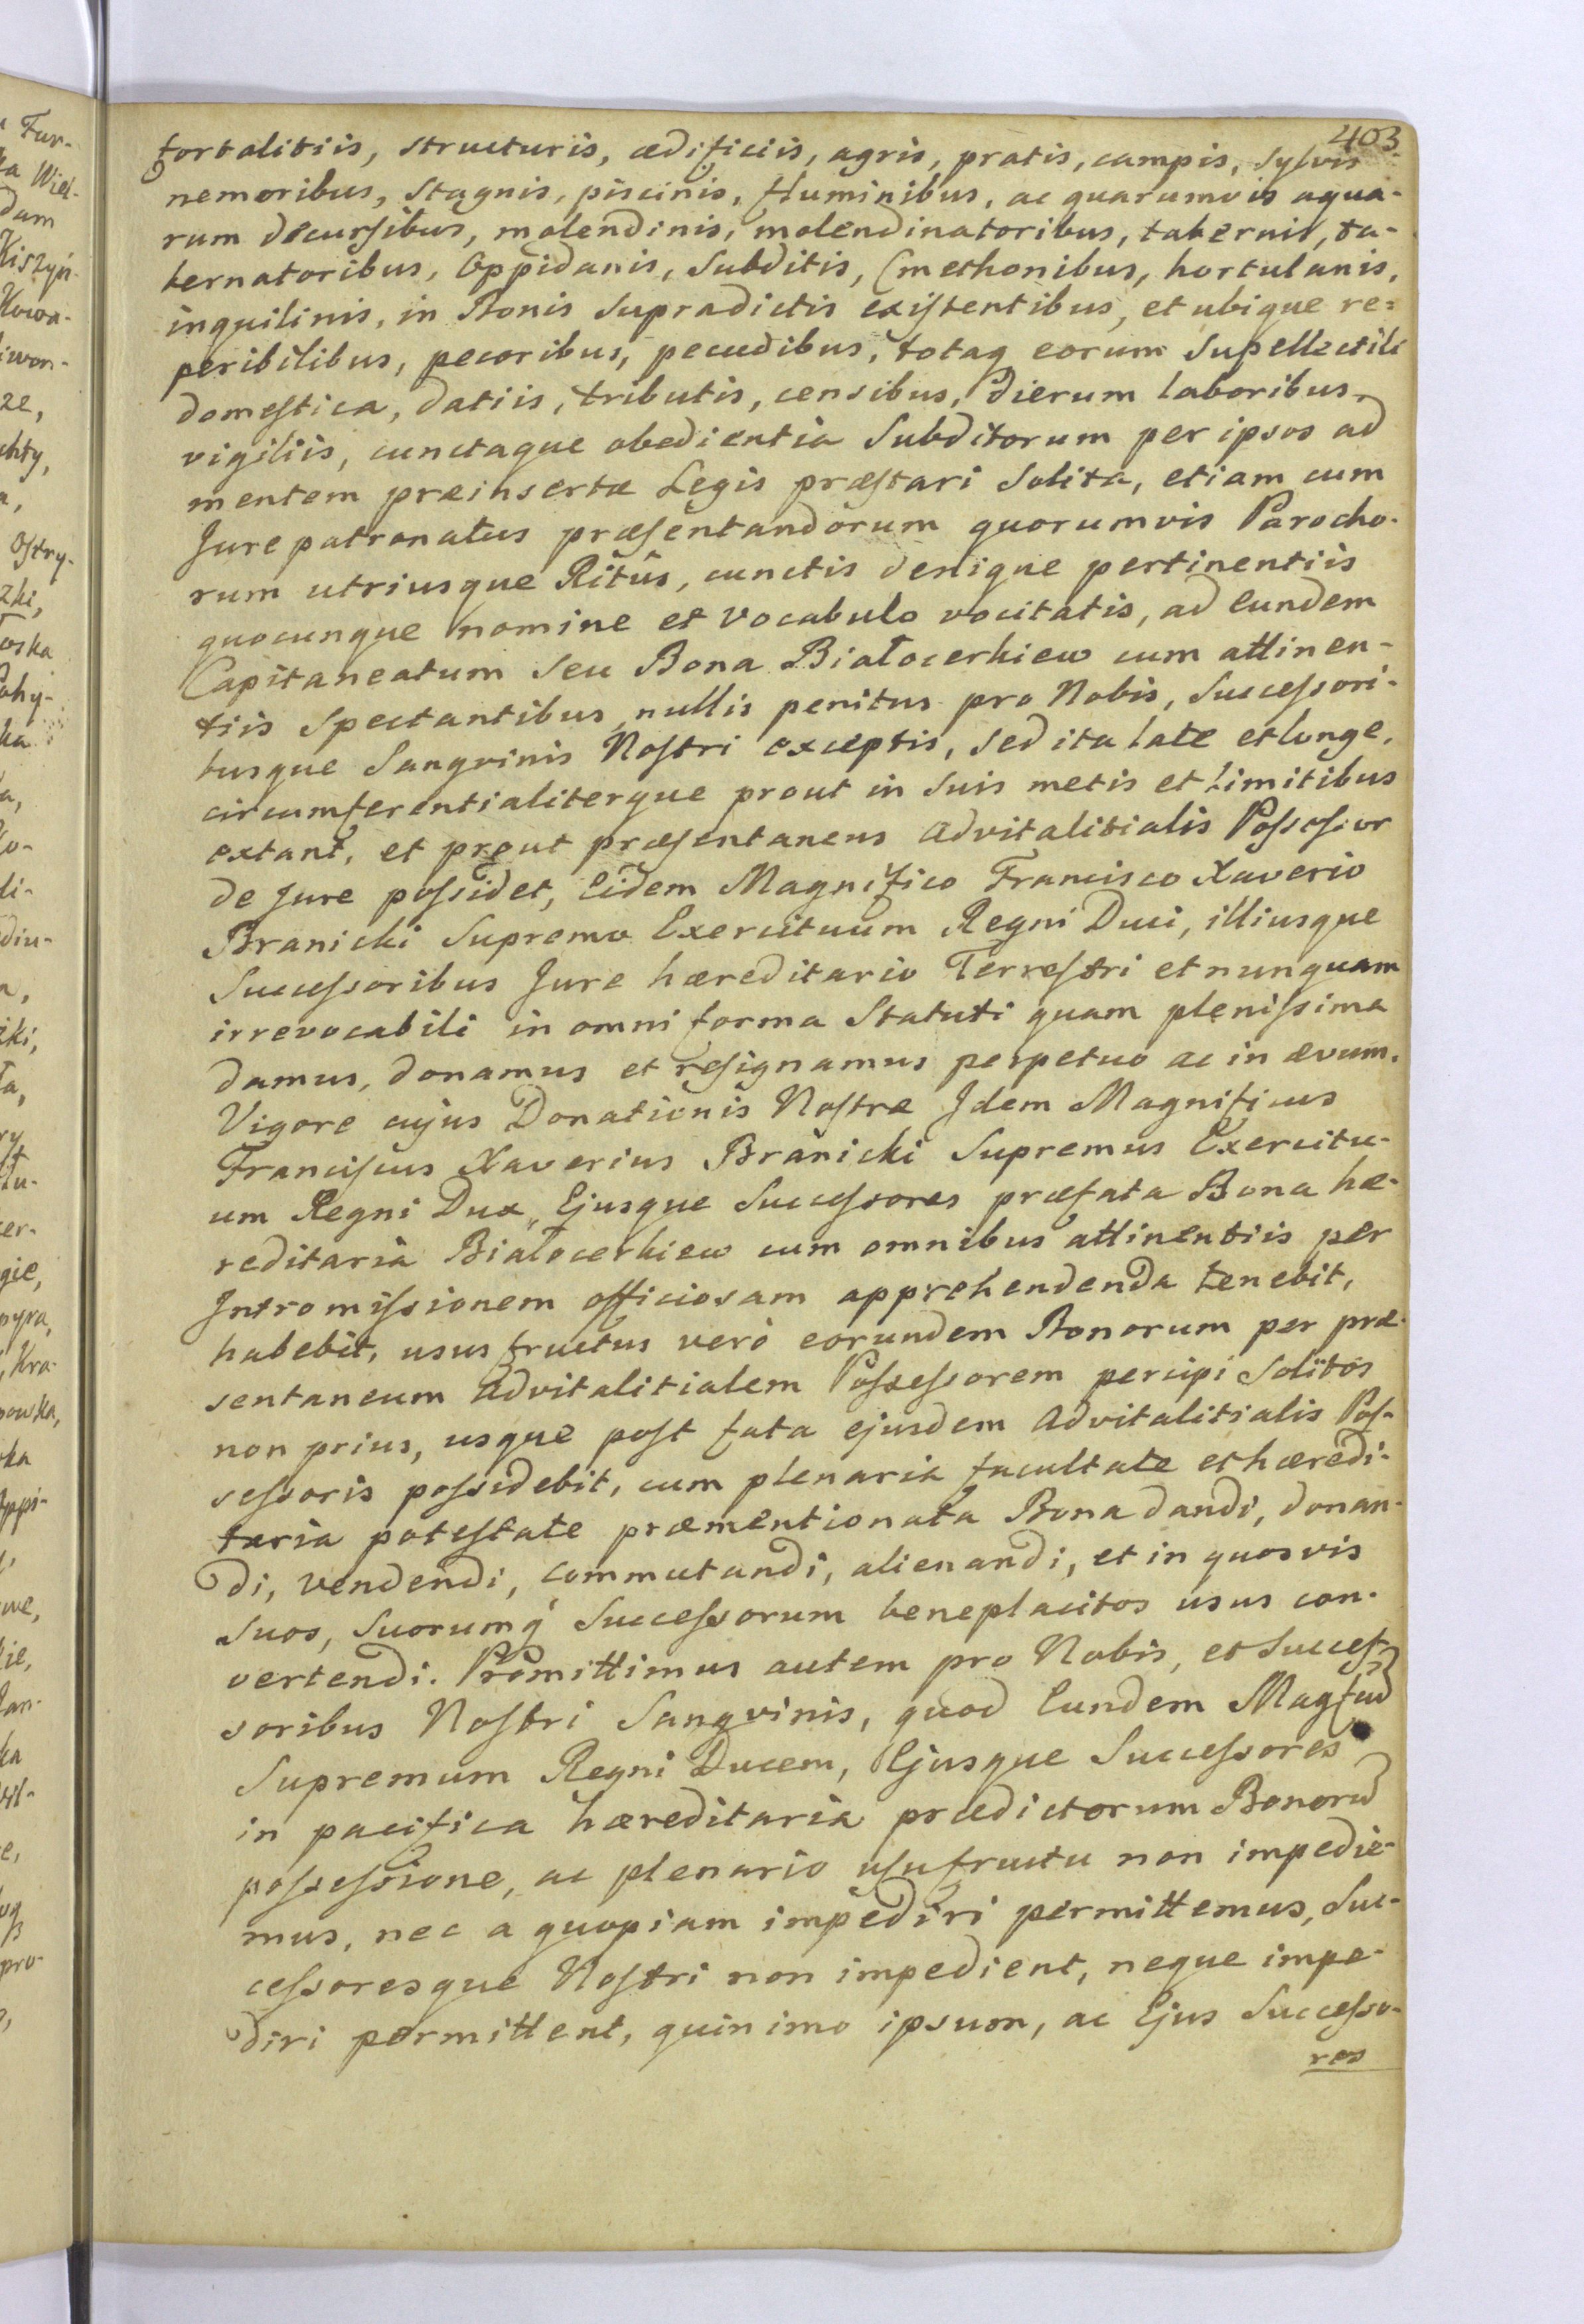 403
fortalitiis, structuris, ædificiis, agris, pratis, campis, sylvis
nemoribus, stagnis, piscinis, fluminibus, ac quarumvis aqua-
rum decursibus, molendinis, molendinatoribus, tabernis, ta-
bernatoribus, Oppidanis, Subditis, Cmethonibus, hortulanis,
inquilinis, in Bonis Supradictis existentibus, et ubique re=
peribilibus, pecoribus, pecudibus, totaq eorum Supellectili
domestica, datiis, tributis, censibus, dierum laboribus,
vigiliis, cunctaque obedientia Subditorum per ipsos ad
mentem præinsertæ Legis præstari Solita, etiam cum
Jure patronatus præsentandorum quorumvis Parocho-
rum utriusque Ritûs, cunctis denique pertinentiis
quocunque nomine et vocabulo vocitatis, ad Eundem
Capitaneatum seu Bona Białocerkiew cum attinen-
tiis Spectantibus, nullis penitus pro Nobis, Successori-
busque Sangvinis Nostri exceptis, sed ita late et longe,
circumferentialiterque prout in Suis metis et Limitibus
extant, et prout præsentaneus Advitalitialis Possessor
de Jure possidet, Eidem Magnifico Francisco Xaverio
Branicki Supremo Exercituum Regni Duci, illiusque
Successoribus Jure hæreditario Terrestri et nunquam
irrevocabili in omni forma Statuti quam plenissima
damus, donamus et resignamus perpetuo ac in ævum.
Vigore cujus Donationis Nostræ Idem Magnificus
Franciscus Xaverius Branicki Supremus Exercitu-
um Regni Dux, Ejusque Successores præfata Bona hæ-
reditaria Białocerkiew cum omnibus attinentiis per
Intromissionem officiosam apprehendenda tenebit,
habebit, usus fructus verò eorundem Bonorum per præ-
sentaneum Advitalitialem Possessorem percipi Solitos
non prius, usque post fata ejusdem Advitalitialis Pos-
sessoris possidebit, cum plenaria facultate et hæredi-
taria potestate præmentionata Bona dandi, donan-
di, vendendi, commutandi, alienandi, et in quosvis
Suos, Suorumq Successorum beneplacitos usus con-
vertendi. Promittimus autem pro Nobis, et Succes-
soribus Nostri Sangvinis, quod Eundem Magfcum
Supremum Regni Ducem, Ejusque Successores
in pacifica hæreditaria prædictorum Bonorum
possessione, ac plenario usufructu non impedie-
mus, nec a quopiam impediri permittemus, Suc-
cessoresque Nostri non impedient, neque impe-
diri permittent, quinimo ipsum, ac Ejus Successo-
res